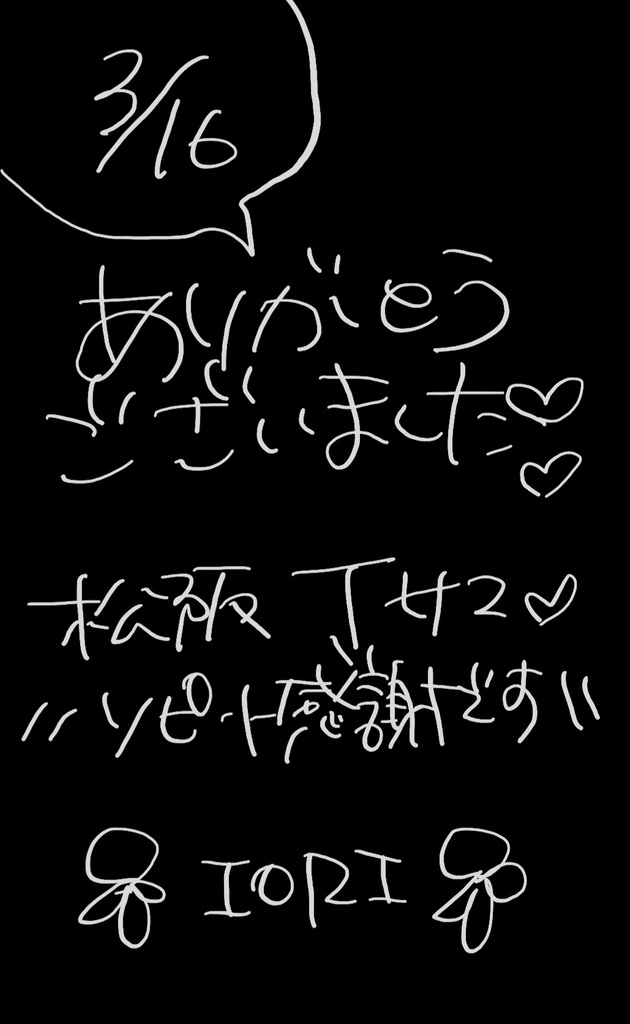 3/16
ありがとう
ございました♡
♡
松阪 Tサマ♡
〃リピート感謝です〃
IORI